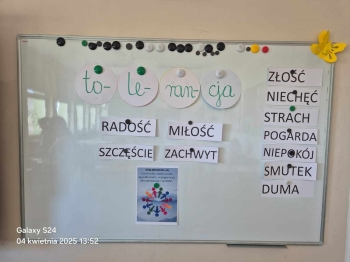 to- le- ran- cja
ZŁOŚĆ
NIECHĘĆ
STRACH
POGARDA
NIEPOKÓJ
SMUTEK
DUMA
RADOŚĆ MIŁOŚĆ
SZCZĘŚCIE ZACHWYT
Galaxy S24
04 kwietnia 2025 13:52